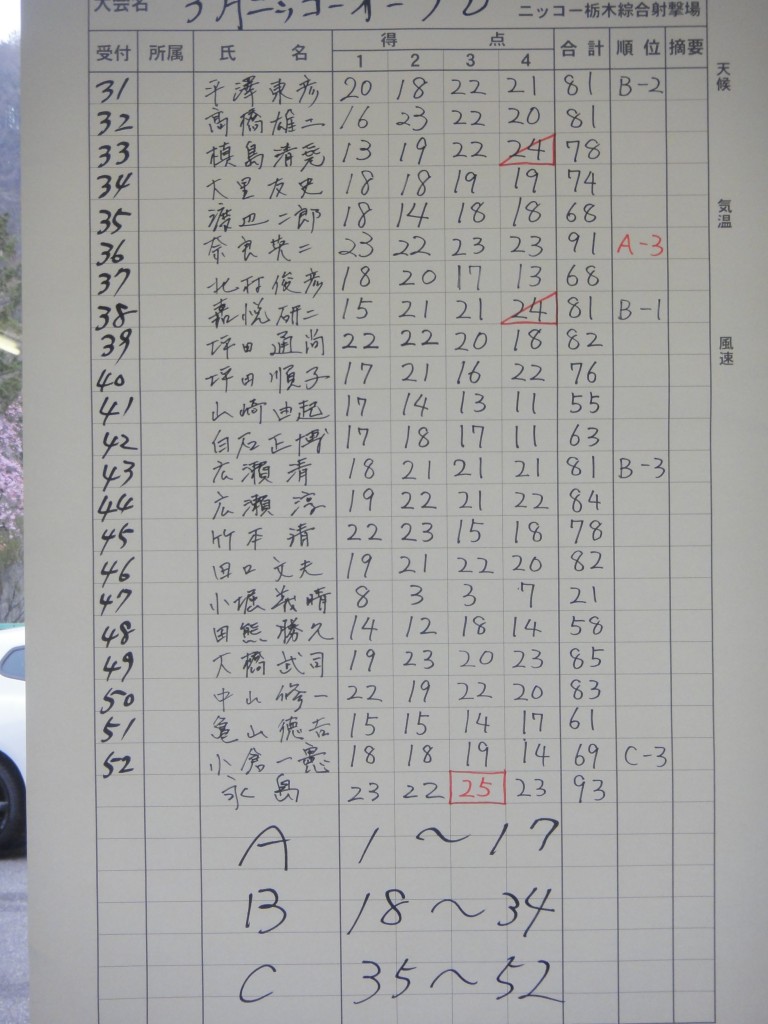 大会名 3月ニッコーオープン ニッコー栃木綜合射撃場
受付 所属 氏名 得点 1 2 3 4 合計 順位 摘要
天候
31 平澤東彦 20 18 22 21 81 B-2
32 高橋雄二 16 23 22 20 81
33 槙島清堯 13 19 22 24 78
34 大里友史 18 18 19 19 74
気温
35 渡辺二郎 18 14 18 18 68
36 奈良英二 23 22 23 23 91 A-3
37 北村俊彦 18 20 17 13 68
38 嘉悦研二 15 21 21 24 81 B-1
風速
39 坪田通尚 22 22 20 18 82
40 坪田順子 17 21 16 22 76
41 山崎由起 17 14 13 11 55
42 白石正博 17 18 17 11 63
43 広瀬清 18 21 21 21 81 B-3
44 広瀬淳 19 22 21 22 84
45 竹本清 22 23 15 18 78
46 田口文夫 19 21 22 20 82
47 小堀義晴 8 3 3 7 21
48 田熊勝久 14 12 18 14 58
49 大橋武司 19 23 20 23 85
50 中山修一 22 19 22 20 83
51 亀山徳吉 15 15 14 17 61
52 小倉一憲 18 18 19 14 69 C-3
永島 23 22 25 23 93
A 1～17
B 18～34
C 35～52